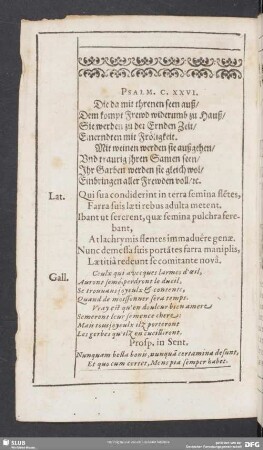 PSALM. C. XXVI.
Die da mit threnen seen auß/
Dem kompt Frewd widerumb zu Hauß/
Sie werden zu der Ernden Zeit/
Einerndten mit Fröligkeit.
Mit weinen werden sie außgehen/
Vnd traurig jhren Samen seen/
Ihr Garben werden sie gleich wol/
Einbringen aller Frewden voll/ꝛc.
Lat. Qui sua considerint in terra semina flētes,
Farra suis læti rebus adulta metent.
Ibant ut sererent, quæ semina pulchra fere-
bant,
At lachrymis flentes immaduêre genæ.
Nunc demessa suis portātes farra maniplis,
Lætitiâ redeunt se comitante novâ.
Gall. Ceulx qui avecques larmes d'œil,
Aurons semé, perdront le dueil,
Et trouvans joyeulx & contents,
Quand de moissonner sera temps.
Vray est qu'en douleur bien amere
Semerons leur semence chere:
Mais tous joyeulx ilz porterons
Les gerbes qu'ilz en cueillerons.
Prosp. in Sent.
Nunquam bella bonis, nunquā certamina desunt,
Et quo cum certet, Mens pia semper habet.
SLUB
DFG